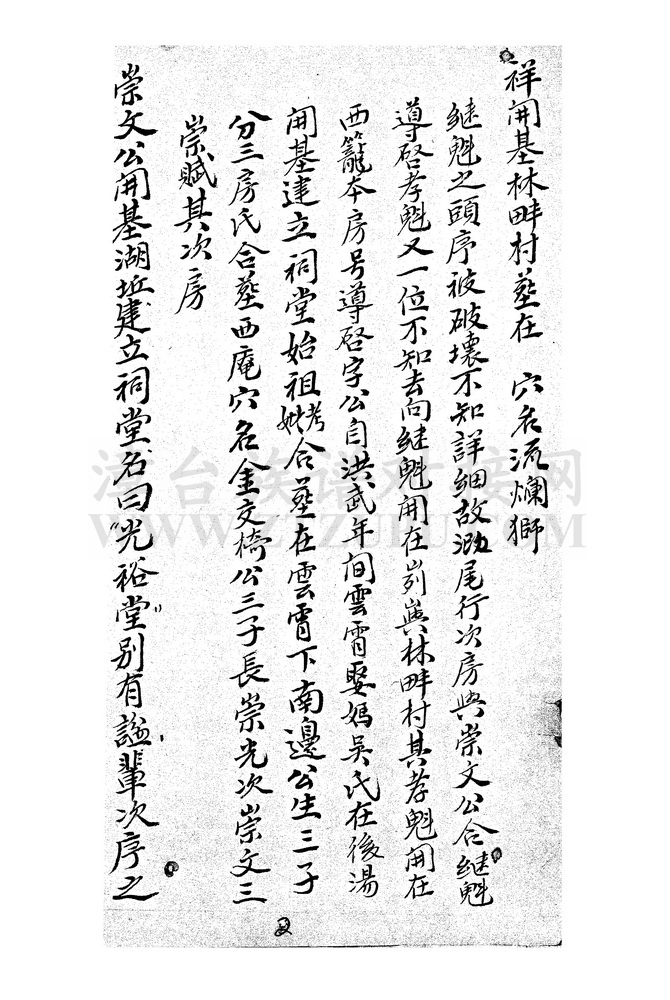 祥開基林畔村墓在　穴名流爛獅
継魁之頭序被破壞不知詳細故泐尾行次房與崇文公合継魁
導啓孝魁又一位不知去向継魁開在峛與林畔村其孝魁開在
西籠本房号導啓字公自洪武年间雲霄娶媽吳氏在後湯
開基建立祠堂始祖考妣合墓在雲霄下南邊公生三子
分三房氏合墓西庵穴名金交椅公三子長崇光次崇文三
崇賦其次房
崇文公開基湖坵建立祠堂名曰光裕堂別有謚輩次序之
湾台族谱对接网
WWW.CTZUPU.COM